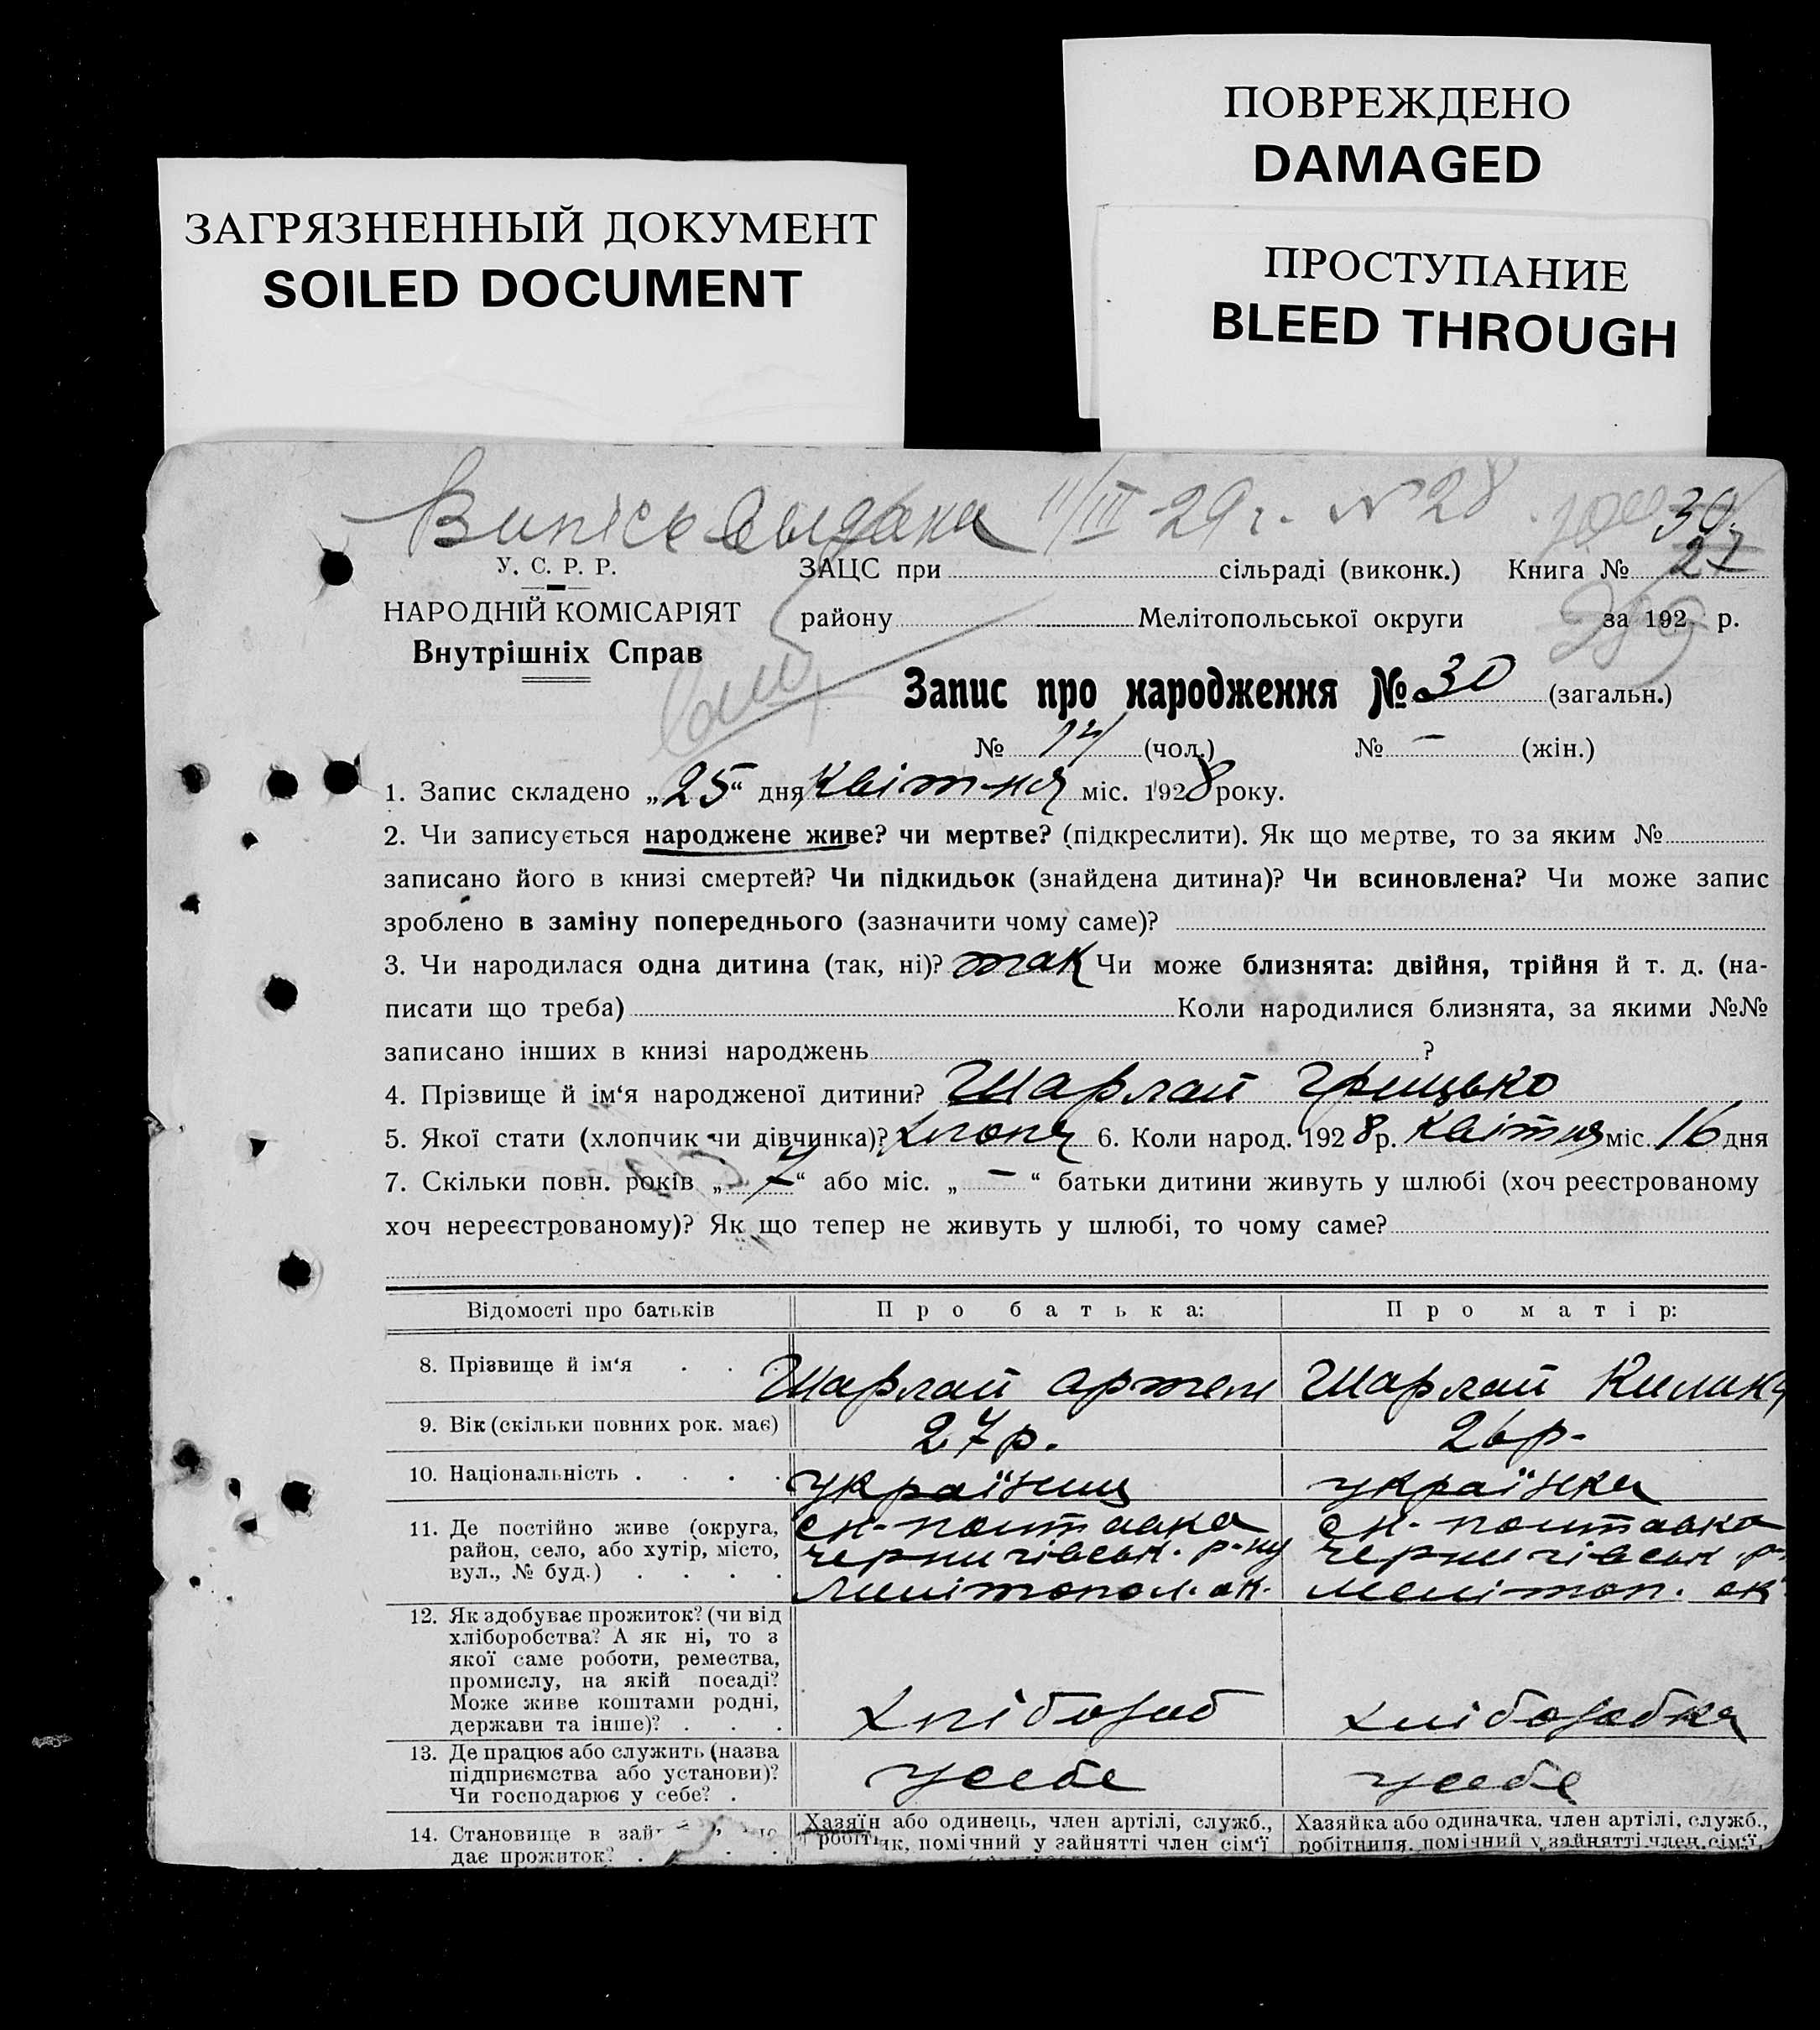 ПОВРЕЖДЕНО
DAMAGED
ЗАГРЯЗНЕННЫЙ ДОКУМЕНТ
SOILED DOCUMENT
ПРОСТУПАНИЕ
BLEED THROUGH
Випісь выдана 11/III-29 г. N 28
30
27
У. С. Р. Р.
НАРОДНІЙ КОМІСАРІЯТ
Внутрішніх Справ
ЗАЦС при сільраді (виконк.) Книга №
району Мелітопольської округи за 192 р.
Запис про народження № 30 (загальн.)
№ 14 (чол.) № – (жін.)
1. Запис складено „25“ дня Квітня міс. 1928 року.
2. Чи записується народжене живе? чи мертве? (підкреслити). Як що мертве, то за яким №
записано його в книзі смертей? Чи підкидьок (знайдена дитина)? Чи всиновлена? Чи може запис
зроблено в заміну попереднього (зазначити чому саме)?
3. Чи народилася одна дитина (так, ні)? так Чи може близнята: двійня, трійня й т. д. (на-
писати що треба) Коли народилися близнята, за якими №№
записано інших в книзі народжень ?
4. Прізвище й ім‘я народженої дитини? Шарлай Грицько
5. Якої стати (хлопчик чи дівчинка)? хлопч 6. Коли народ. 1928 р. квітня міс. 16 дня
7. Скільки повн. років „7“ або міс. „–“ батьки дитини живуть у шлюбі (хоч реєстрованому
хоч нереєстрованому)? Як що тепер не живуть у шлюбі, то чому саме?
Відомості про батьків Про батька: Про матір:
8. Прізвище й ім‘я . . . Шарлай Артем Шарлай Килина
9. Вік (скільки повних рок. має) 27 р. 26 р.
10. Національність . . . . українец українка
11. Де постійно живе (округа,
район, село, або хутір, місто,
вул., № буд.) . . . .
Ск. полтавка
черниговськ. р-ну
Мелітопол. ок.
Ск. полтавка
чернигівськ. р-
Мелітоп. ок
12. Як здобуває прожиток? (чи від
хліборобства? А як ні, то з
якої саме роботи, ремества,
промислу, на якій посаді?
Може живе коштами родні,
держави та інше)? . . .
хлібороб хлоборобка
13. Де працює або служить (назва
підприємства або установи)?
Чи господарює у себе? .
у себе у себе
14. Становище в
дає прожиток? . . .
Хазяїн або одинець, член артілі, служб.,
робітник, помічний у зайнятті член сім‘ї
Хазяйка або одиначка, член артілі, служб.,
робітниця, помічний у зайнятті член сім‘ї,